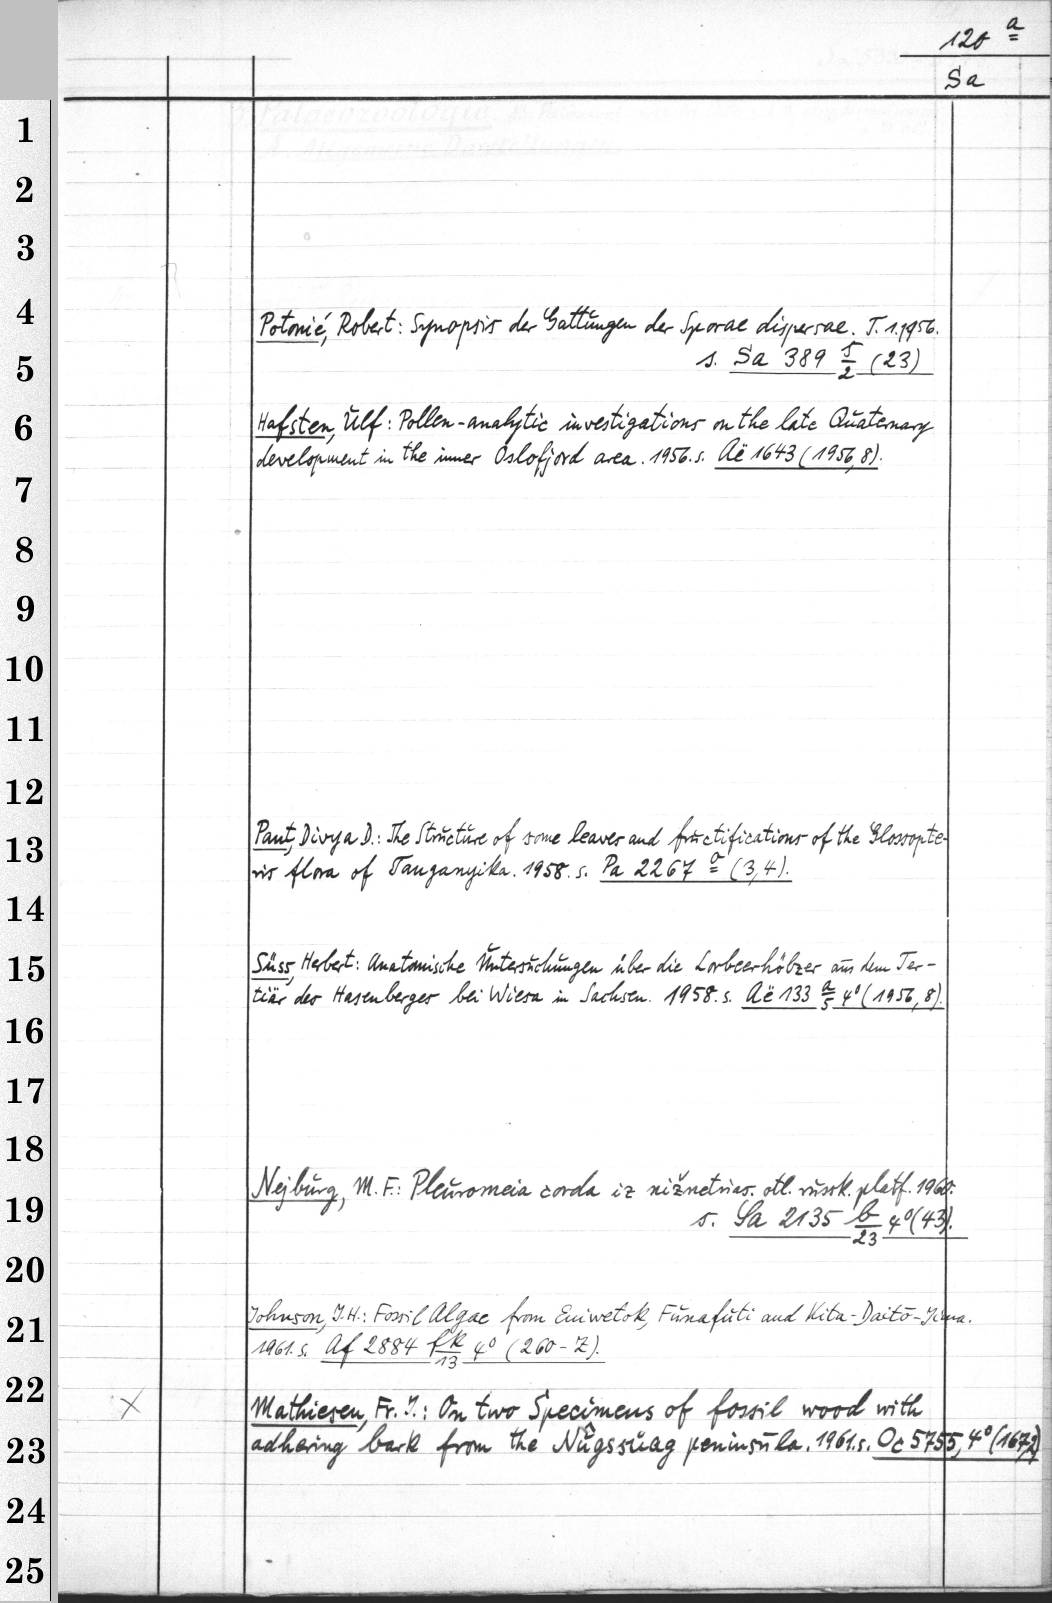 120 a
Sa
1
2
3
4
Potonié, Robert: Synopsis der Gattungen der Sporae dispersae. T. 1. 1956.
5
s. Sa 389 5/2 (23)
6
Hafsten, Ulf: Pollen-analytic investigations on the late Quaternary
development in the inner Oslofjord area. 1956. s. Aë 1643 (1956,8).
7
8
9
10
11
12
13
Pant, Divya D.: The Structure of some leaves and fructifications of the Glossopte-
ris flora of Tanganyika. 1958. s. Pa 2267 a (3,4).
14
15
Süss, Herbert: Anatomische Untersuchungen über die Lorbeerhölzer aus dem Ter-
tiär des Hasenberges bei Wiesa in Sachsen. 1958. s. Aë 133 a/5 4° (1956,8).
16
17
18
Nejburg, M. F.: Pleuromeia corda iz nižnetrias. otl. russk. platf. 1960.
19
s. Sa 2135 b/23 4° (43).
20
21
Johnson, J. H.: Fossil Algae from Eniwetok, Funafuti and Kita-Daitō-Jima.
1961. s. Af 2884 fk/13 4° (260-Z).
22
Mathiesen, Fr. J.: On two Specimens of fossil wood with
23
adhering bark from the Nûgssuaq peninsula. 1961. s. Oc 5755, 4° (167,2)
24
25